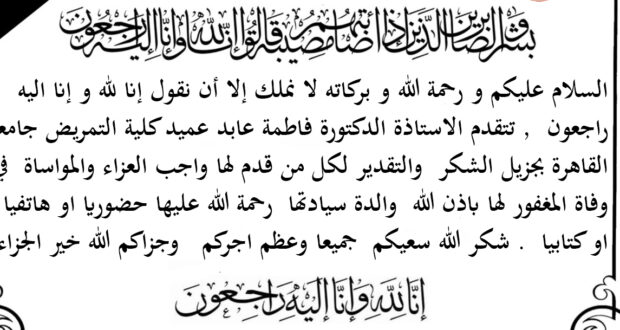 وبشر الصابرين الذين إذا أصابتهم مصيبة قالوا إنا لله وإنا إليه راجعون
السلام عليكم و رحمة الله و بركاته لا نملك إلا أن نقول إنا لله و إنا اليه
راجعون , تتقدم الاستاذة الدكتورة فاطمة عابد عميد كلية التمريض جامع
القاهرة بجزيل الشكر والتقدير لكل من قدم لها واجب العزاء والمواساة في
وفاة المغفور لها باذن الله والدة سيادتها رحمة الله عليها حضوريا او هاتفيا
او كتابيا . شكر الله سعيكم جميعا وعظم اجركم وجزاكم الله خير الجزاء
إنا لله وإنا إليه راجعون